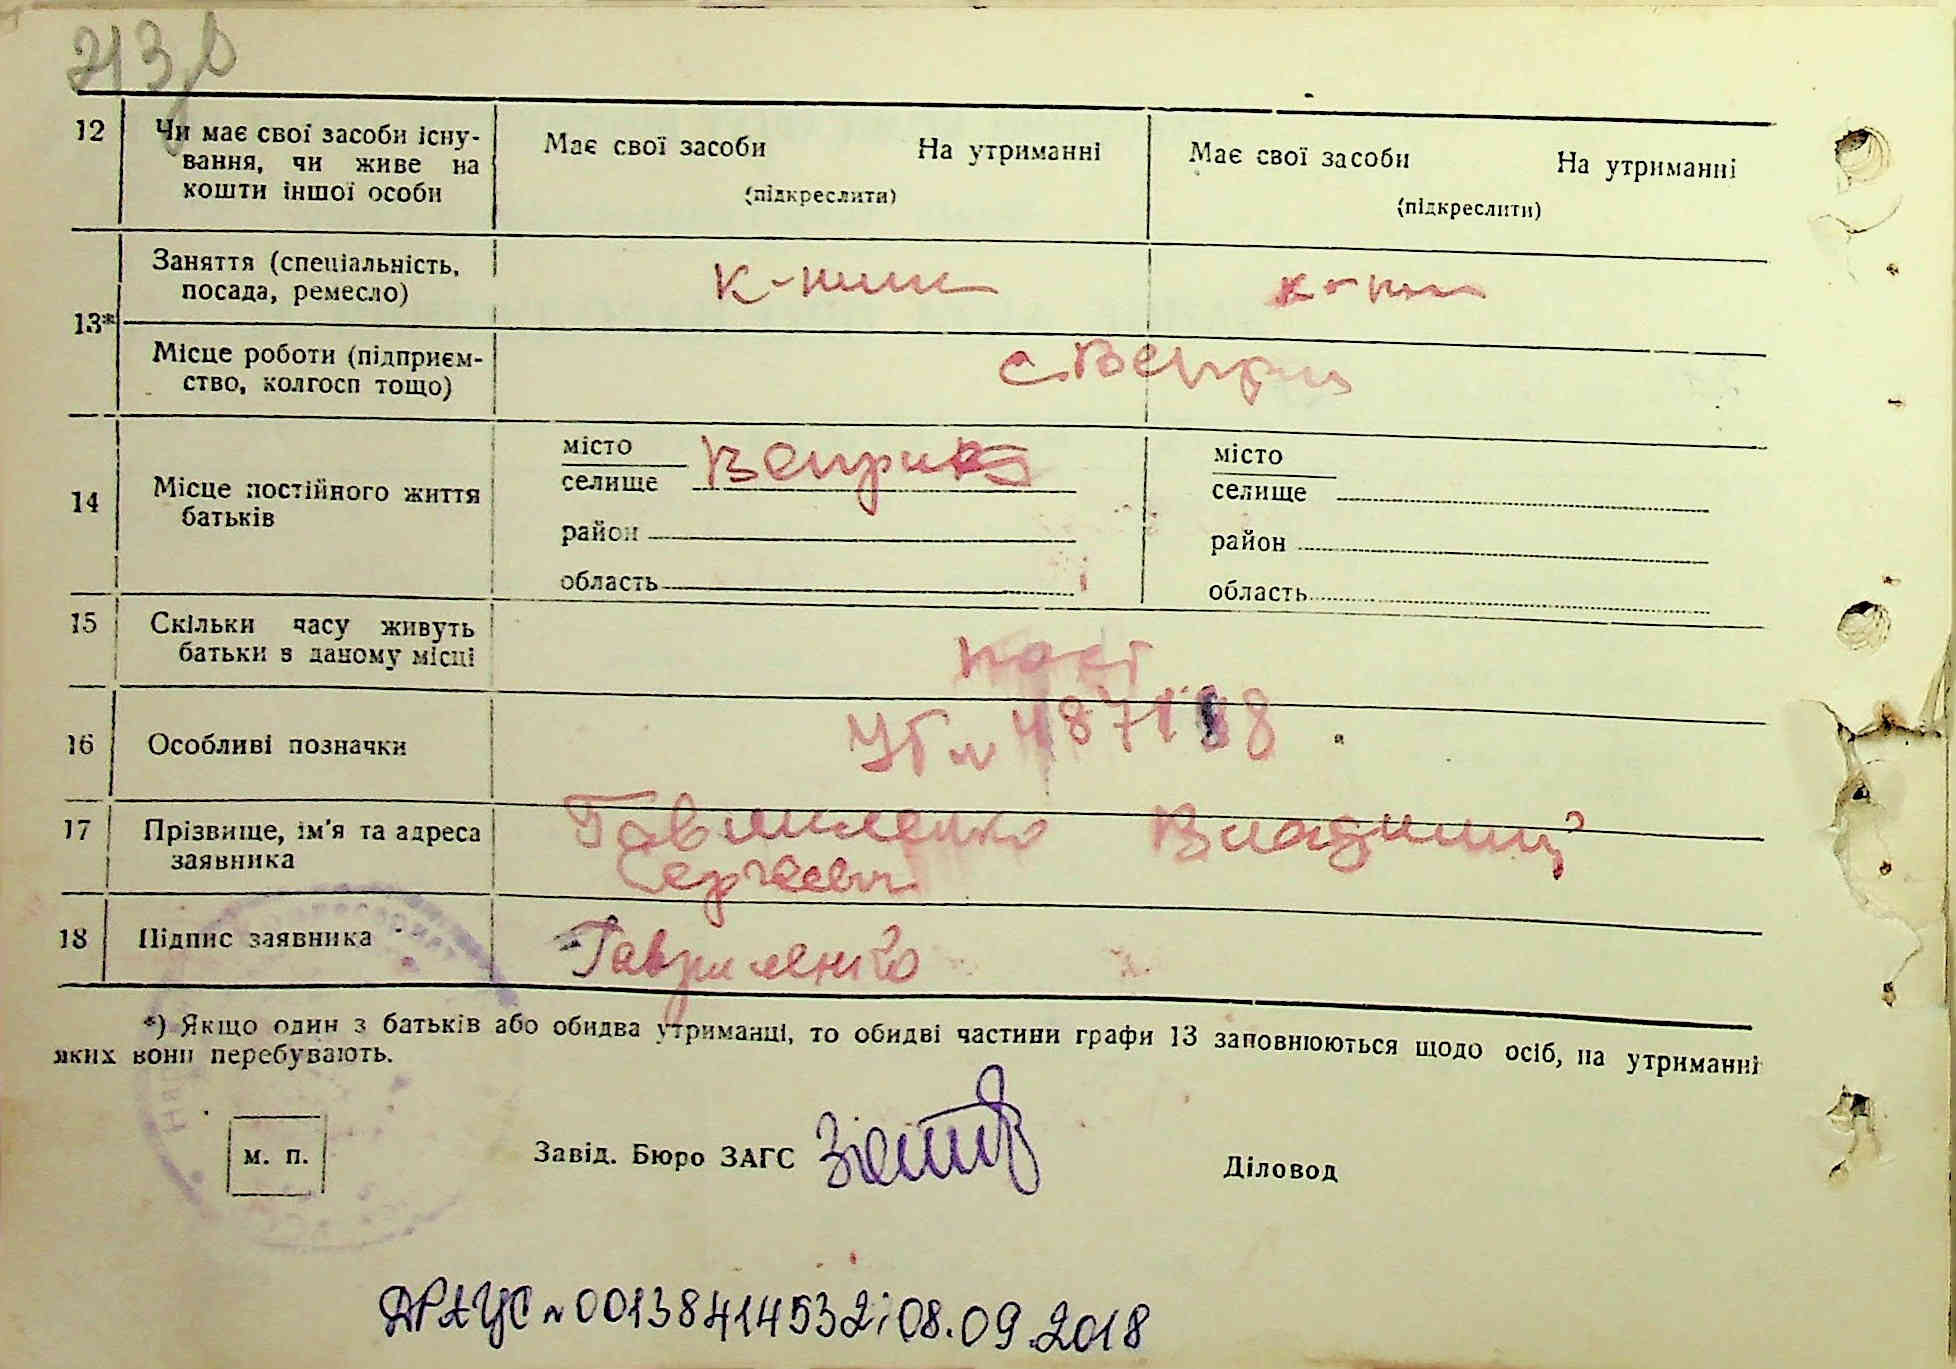 213
12 Чи має свої засоби існу-
вання, чи живе на
кошти іншої особи
Має свої засоби На утриманні
(підкреслити)
Має свої засоби На утриманні
(підкреслити)
13*
Заняття (спеціальність,
посада, ремесло)
к-ник
Місце роботи (підприєм-
ство, колгосп тощо)
14 Місце постійного життя
батьків
місто
селище
район
область
місто
селище
район
область
15 Скільки часу живуть
батьки в даному місці
пост
16 Особливі позначки
17 Прізвище, ім'я та адреса
заявника
Гавриленко Владимир
Сергеевич
18 Підпис заявника
Гавриленко
*) Якщо один з батьків або обидва утриманці, то обидві частини графи 13 заповнюються щодо осіб, на утриманні
яких вони перебувають.
м. п.
Завід. Бюро ЗАГС
Діловод
ДРАЦС № 00138414532; 08.09.2018